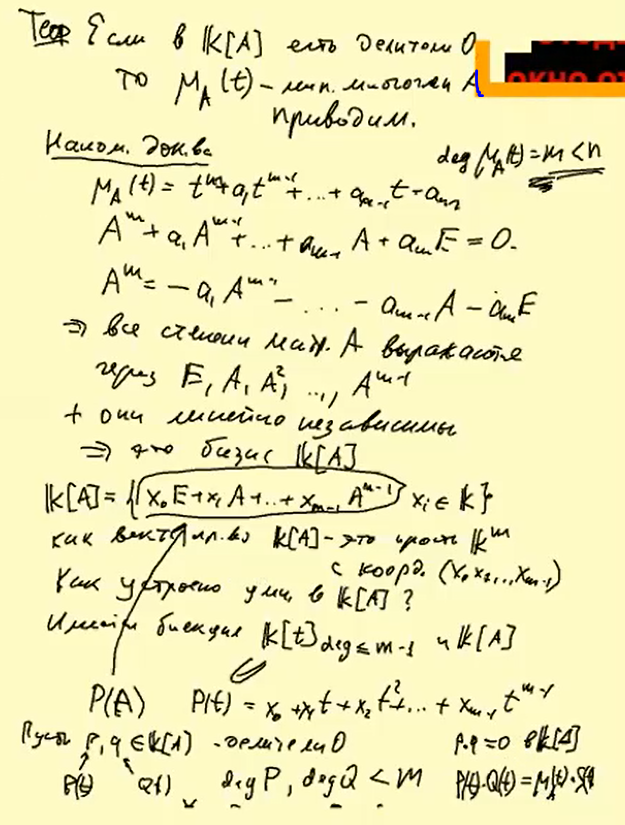 Теор Если в 𝕜[A] есть делители 0
то μ_A(t) – мин. многочлен A
приводим.
Наном. док-ва
deg μ_A(t) = m < n
μ_A(t) = t^m + a_1 t^{m-1} + ... + a_{m-1} t + a_m
A^m + a_1 A^{m-1} + ... + a_{m-1} A + a_m E = 0.
A^m = -a_1 A^{m-1} - ... - a_{m-1} A - a_m E
⇒ все степени матр. A выражаются
через E, A, A^2, ..., A^{m-1}
+ они линейно независимы
⇒ это базис 𝕜[A]
𝕜[A] = { x_0 E + x_1 A + ... + x_{m-1} A^{m-1} , x_i ∈ 𝕜 }
как вект. пр-во 𝕜[A] – это просто 𝕜^m
с коорд. (x_0, x_1, ..., x_{m-1})
Как устроено умн. в 𝕜[A] ?
Имеем биекция 𝕜[t]_{deg ≤ m-1} и 𝕜[A]
P(A) P(t) = x_0 + x_1 t + x_2 t^2 + ... + x_{m-1} t^{m-1}
Пусть p, q ∈ 𝕜[A] - делители 0 p·q = 0 в 𝕜[A]
P(t) Q(t) deg P, deg Q < m P(t)·Q(t) = μ_A(t)·S(t)